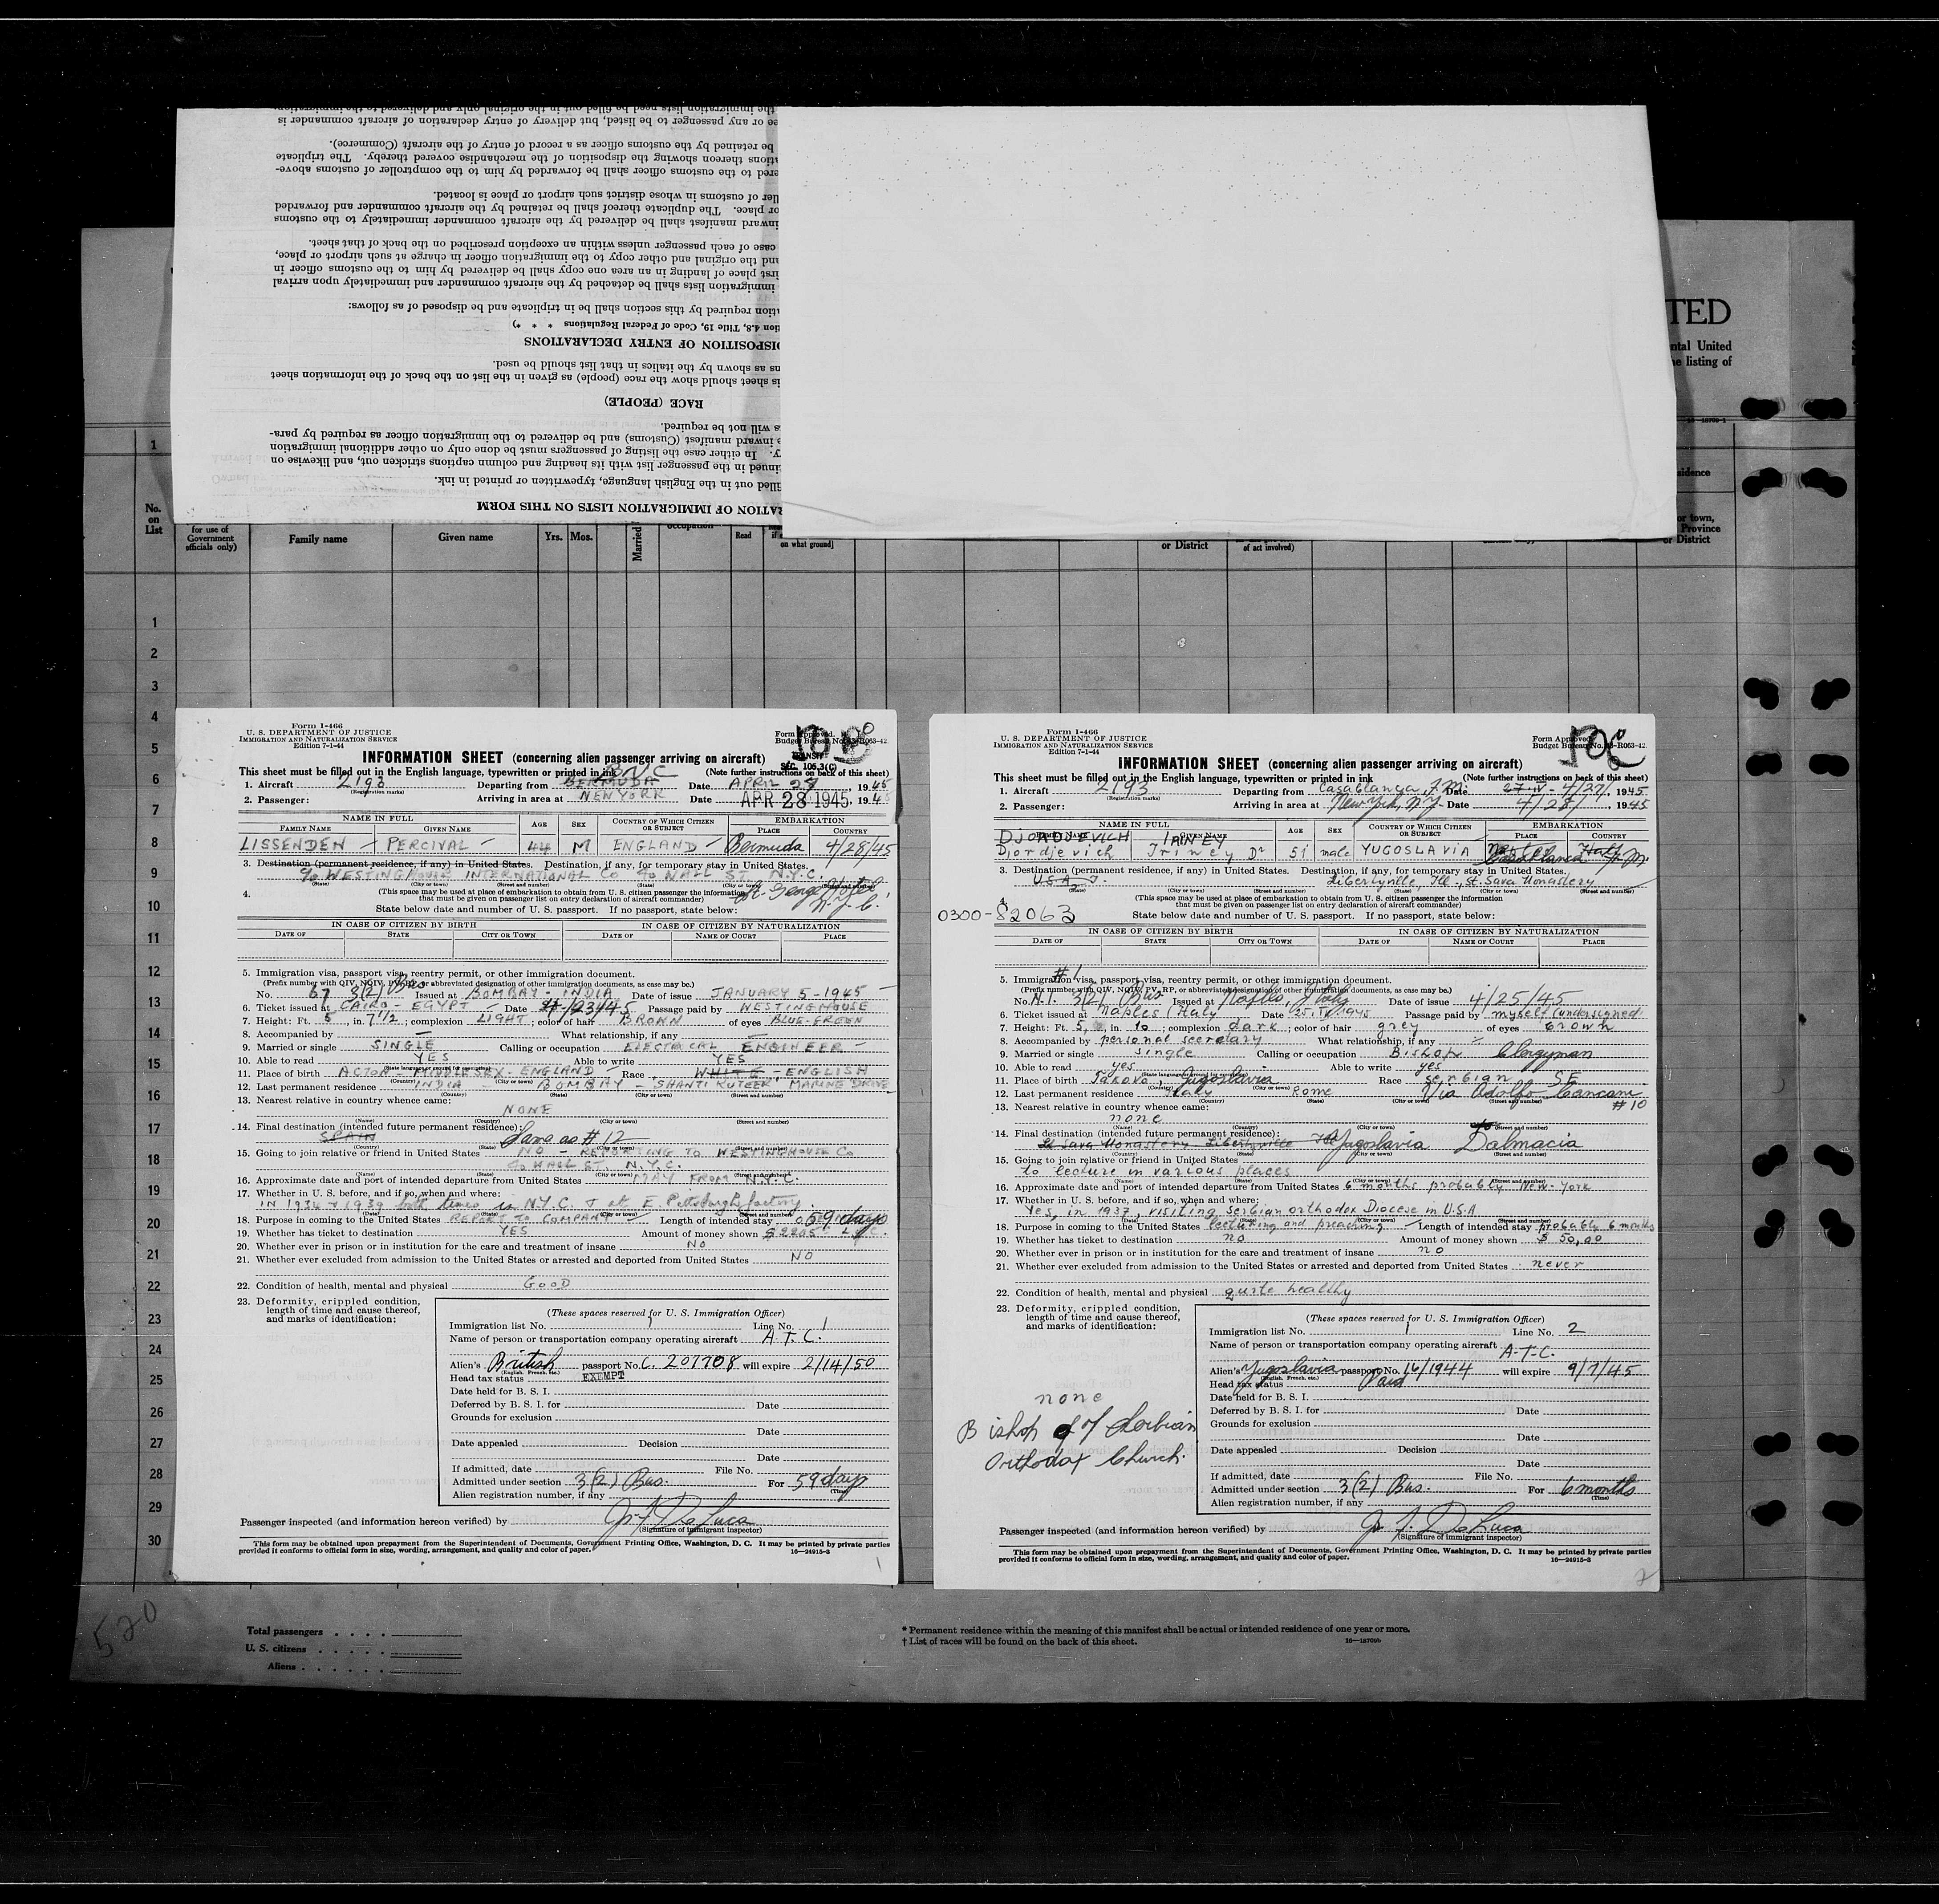 the immigration lists need be filled out in the original only and delivered to the immigration
ee or any passenger to be listed, but delivery of entry declaration of aircraft commander is
be retained by the customs officer as a record of entry of the aircraft (Commerce).
ations thereon showing the disposition of the merchandise covered thereby. The triplicate
ered to the customs officer shall be forwarded by him to the comptroller of customs above-
ller of customs in whose district such airport or place is located.
or place. The duplicate thereof shall be retained by the aircraft commander and forwarded
inward manifest shall be delivered by the aircraft commander immediately to the customs
case of each passenger unless within an exception prescribed on the back of that sheet.
und the original and other copy to the immigration officer in charge at such airport or place,
first place of landing in an area one copy shall be delivered by him to the customs officer in
immigration lists shall be detached by the aircraft commander and immediately upon arrival
ation required by this section shall be in triplicate and be disposed of as follows:
tion 4.8, Title 19, Code of Federal Regulations * * *)
DISPOSITION OF ENTRY DECLARATIONS
ns as shown by the italics in that list should be used.
is sheet should show the race (people) as given in the list on the back of the information sheet
RACE (PEOPLE)
s will not be required.
e inward manifest (Customs) and be delivered to the immigration officer as required by para-
y. In either case the listing of passengers must be done only on other additional immigration
inued in the passenger list with its heading and column captions stricken out, and likewise on
illed out in the English language, typewritten or printed in ink.
RATION OF IMMIGRATION LISTS ON THIS FORM
TED
ntal United
e listing of
No. on List
for use of Government officials only)
Family name
Given name
Yrs. Mos.
Married
occupation
Read
on what ground]
or District
of act involved)
sidence
or town, Province or District
1
1
2
3
4
5
6
7
8
9
10
11
12
13
14
15
16
17
18
19
20
21
22
23
24
25
26
27
28
29
30
Form I-466
U. S. DEPARTMENT OF JUSTICE
IMMIGRATION AND NATURALIZATION SERVICE
Edition 7-1-44
Form Approved.
Budget Bureau No. 43-R063-42.
INFORMATION SHEET (concerning alien passenger arriving on aircraft)
SEC. 105.3(C)
This sheet must be filled out in the English language, typewritten or printed in ink (Note further instructions on back of this sheet)
1. Aircraft 2193 Departing from BERMUDA Date APRIL 27 1945
(Registration marks)
2. Passenger: Arriving in area at NEW YORK Date APR 28 1945 194
NAME IN FULL AGE SEX COUNTRY OF WHICH CITIZEN OR SUBJECT EMBARKATION
FAMILY NAME GIVEN NAME PLACE COUNTRY
LISSENDEN PERCIVAL 44 M ENGLAND Bermuda 4/28/45
3. Destination (permanent residence, if any) in United States. Destination, if any, for temporary stay in United States.
c/o WESTINGHOUSE INTERNATIONAL Co 40 WALL ST. N.Y.C.
(State) (City or town) (Street and number)
4. (This space may be used at place of embarkation to obtain from U. S. citizen passenger the information
that must be given on passenger list on entry declaration of aircraft commander)
St. George Hotel N.Y.C.
State below date and number of U. S. passport. If no passport, state below:
IN CASE OF CITIZEN BY BIRTH IN CASE OF CITIZEN BY NATURALIZATION
DATE OF STATE CITY OR TOWN DATE OF NAME OF COURT PLACE
5. Immigration visa, passport visa, reentry permit, or other immigration document.
(Prefix number with QIV, NQIV, PV, RP, or abbreviated designation of other immigration documents, as case may be.)
No. 67 3(2) Bus. Issued at BOMBAY - INDIA Date of issue JANUARY 5 - 1945
6. Ticket issued at CAIRO - EGYPT Date 4/23/45 Passage paid by WESTINGHOUSE
7. Height: Ft. 5, in. 7 1/2; complexion LIGHT; color of hair BROWN of eyes BLUE-GREEN
8. Accompanied by — What relationship, if any —
9. Married or single SINGLE Calling or occupation ELECTRICAL ENGINEER
10. Able to read YES Able to write YES
11. Place of birth ACTON - MIDDLESEX - ENGLAND Race WHITE - ENGLISH
12. Last permanent residence INDIA BOMBAY - SHANTI KUTEER, MARINE DRIVE
(Country) (State) (City or town) (Street and number)
13. Nearest relative in country whence came:
NONE
(Name) (City or town) (Street and number)
14. Final destination (intended future permanent residence):
SPAIN Same as #12
15. Going to join relative or friend in United States NO - REPORTING TO WESTINGHOUSE Co
40 WALL ST. N.Y.C.
16. Approximate date and port of intended departure from United States MAY FROM N.Y.C.
17. Whether in U. S. before, and if so, when and where:
IN 1934 & 1939 both times in N.Y.C. & at E. Pittsburgh factory
18. Purpose in coming to the United States REPORT TO COMPANY Length of intended stay 59 days
19. Whether has ticket to destination YES Amount of money shown
20. Whether ever in prison or in institution for the care and treatment of insane NO
21. Whether ever excluded from admission to the United States or arrested and deported from United States NO
22. Condition of health, mental and physical GOOD
23. Deformity, crippled condition,
length of time and cause thereof,
and marks of identification:
(These spaces reserved for U. S. Immigration Officer)
Immigration list No. 1 Line No. 1
Name of person or transportation company operating aircraft A.T.C.
Alien's British passport No. C. 207708 will expire 2/14/50
(English, French, etc.)
Head tax status EXEMPT
Date held for B. S. I.
Deferred by B. S. I. for Date
Grounds for exclusion
Date
Date appealed Decision
Date
If admitted, date File No.
Admitted under section 3(2) Bus. For 59 days
(Time)
Alien registration number, if any
Passenger inspected (and information hereon verified) by J. F. De Luca
(Signature of immigrant inspector)
This form may be obtained upon prepayment from the Superintendent of Documents, Government Printing Office, Washington, D. C. It may be printed by private parties
provided it conforms to official form in size, wording, arrangement, and quality and color of paper. 16—24915-2
1
Form I-466
U. S. DEPARTMENT OF JUSTICE
IMMIGRATION AND NATURALIZATION SERVICE
Edition 7-1-44
Form Approved.
Budget Bureau No. 43-R063-42.
INFORMATION SHEET (concerning alien passenger arriving on aircraft)
This sheet must be filled out in the English language, typewritten or printed in ink (Note further instructions on back of this sheet)
1. Aircraft 2193 Departing from Casablanca, F.M. Date 27-IV - 4/27/ 1945
(Registration marks)
2. Passenger: Arriving in area at New York, N.Y. Date 4/28/ 1945
NAME IN FULL AGE SEX COUNTRY OF WHICH CITIZEN OR SUBJECT EMBARKATION
FAMILY NAME GIVEN NAME PLACE COUNTRY
DJORDJEVICH IRINEY
Djordjevich Iriney Dr 51 male YUGOSLAVIA Casablanca F.M.
3. Destination (permanent residence, if any) in United States. Destination, if any, for temporary stay in United States.
U.S.A. Libertyville, Ill., St. Sava Monastery
(State) (City or town) (Street and number)
4. (This space may be used at place of embarkation to obtain from U. S. citizen passenger the information
that must be given on passenger list on entry declaration of aircraft commander)
0300-82063 State below date and number of U. S. passport. If no passport, state below:
IN CASE OF CITIZEN BY BIRTH IN CASE OF CITIZEN BY NATURALIZATION
DATE OF STATE CITY OR TOWN DATE OF NAME OF COURT PLACE
5. Immigration visa, passport visa, reentry permit, or other immigration document.
#1
(Prefix number with QIV, NQIV, PV, RP, or abbreviated designation of other immigration documents, as case may be.)
No. N.I. 3(2) Bus Issued at Naples, Italy Date of issue 4/25/45
6. Ticket issued at Naples (Italy Date 25.IV 1945 Passage paid by myself (undersigned
7. Height: Ft. 5, in. 10; complexion dark; color of hair grey of eyes brown
8. Accompanied by personal secretary What relationship, if any
9. Married or single single Calling or occupation Bishop Clergyman
10. Able to read yes Able to write yes
11. Place of birth Yugoslavia Race serbian SE
12. Last permanent residence Italy Rome Via Adolfo Cancani #10
13. Nearest relative in country whence came:
none
(Name) (City or town) (Street and number)
14. Final destination (intended future permanent residence):
St Sava Monastery Libertyville Ill Yugoslavia Dalmacia
15. Going to join relative or friend in United States
to lecture in various places
16. Approximate date and port of intended departure from United States 6 months probably New-York
17. Whether in U. S. before, and if so, when and where:
Yes, in 1937, visiting serbian orthodox Diocese in U.S.A
18. Purpose in coming to the United States lecturing and preaching Length of intended stay probably 6 months
19. Whether has ticket to destination no Amount of money shown $ 50,00
20. Whether ever in prison or in institution for the care and treatment of insane no
21. Whether ever excluded from admission to the United States or arrested and deported from United States never
22. Condition of health, mental and physical quite healthy
23. Deformity, crippled condition,
length of time and cause thereof,
and marks of identification:
none
Bishop of Serbian
Orthodox Church.
(These spaces reserved for U. S. Immigration Officer)
Immigration list No. 1 Line No. 2
Name of person or transportation company operating aircraft A.T.C.
Alien's Yugoslavia passport No. 16/1944 will expire 9/7/45
(English, French, etc.)
Head tax status Paid
Date held for B. S. I.
Deferred by B. S. I. for Date
Grounds for exclusion
Date
Date appealed Decision
Date
If admitted, date File No.
Admitted under section 3(2) Bus. For 6 months
(Time)
Alien registration number, if any
Passenger inspected (and information hereon verified) by J. F. De Luca
(Signature of immigrant inspector)
This form may be obtained upon prepayment from the Superintendent of Documents, Government Printing Office, Washington, D. C. It may be printed by private parties
provided it conforms to official form in size, wording, arrangement, and quality and color of paper. 16—24915-2
2
520
Total passengers
U. S. citizens
Aliens
* Permanent residence within the meaning of this manifest shall be actual or intended residence of one year or more.
† List of races will be found on the back of this sheet. 16—18709b